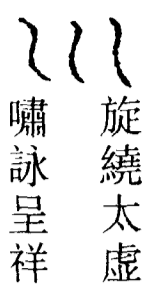 旋繞太虛
嘯詠呈祥